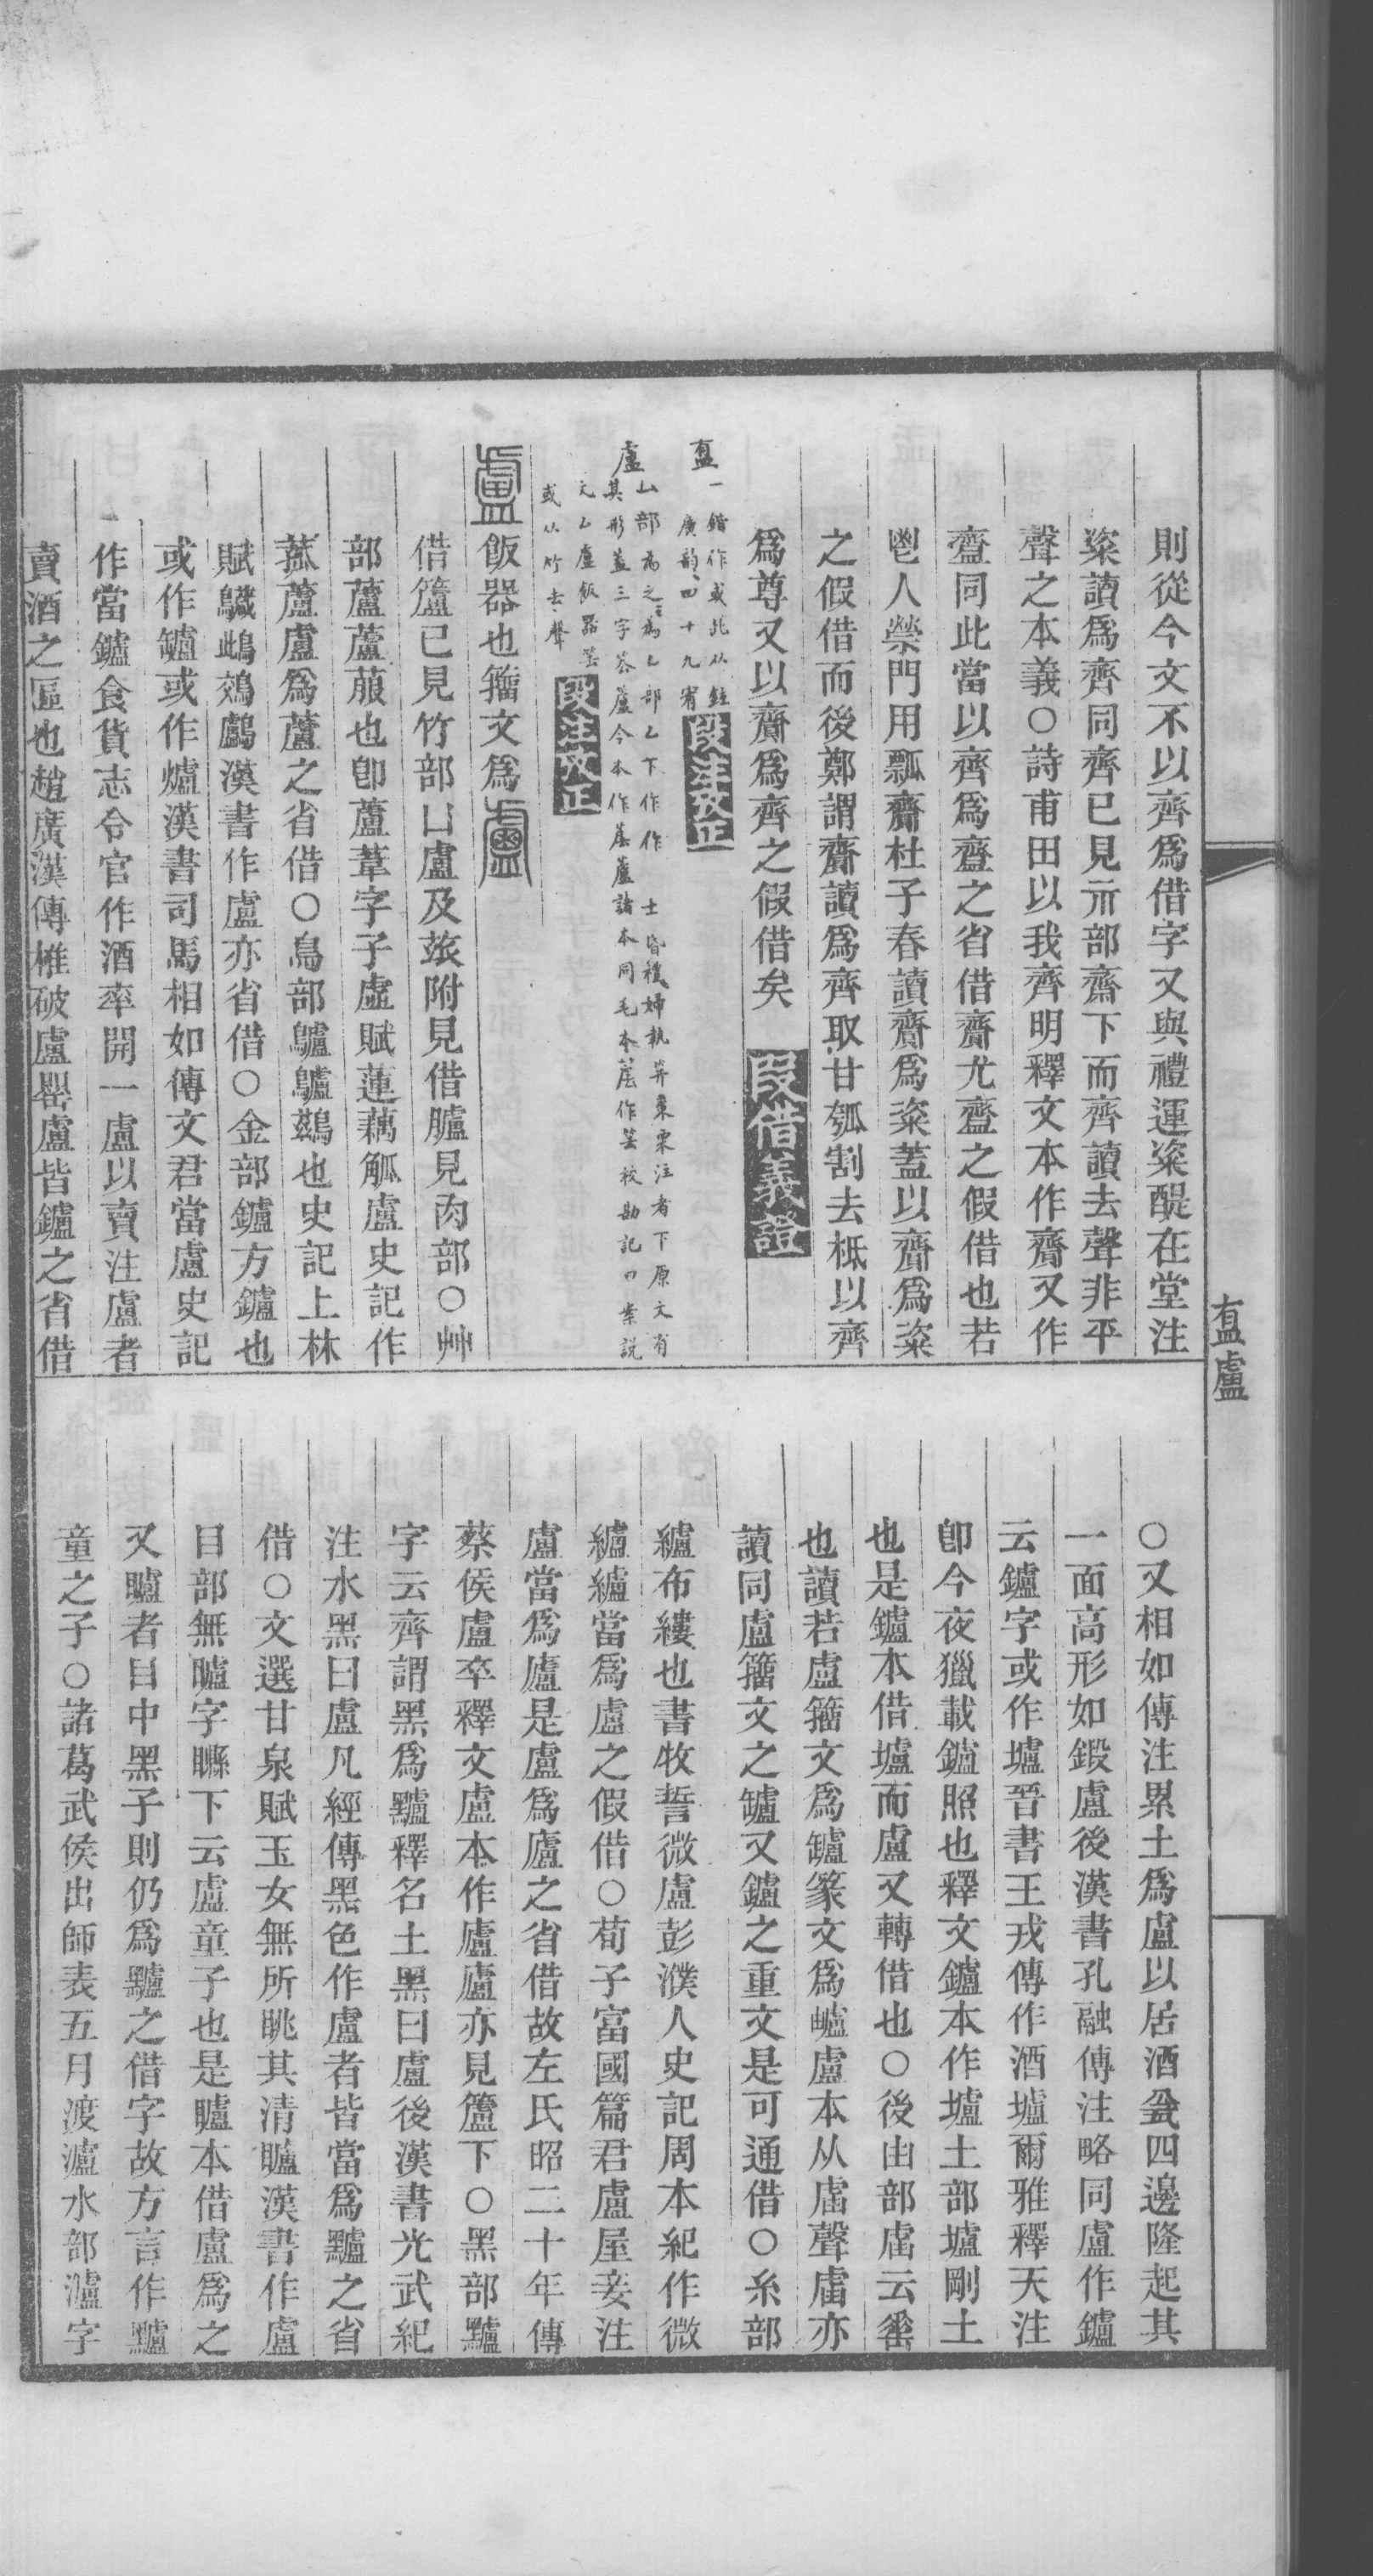 則從今文不以齊爲借字又與禮運粢醍在堂注
粢讀爲齊同齊已見亣部齋下而齊讀去聲非平
聲之本義○詩甫田以我齊明釋文本作齎又作
齍同此當以齊爲齍之省借齎尤齍之假借也若
鬯人禜門用瓢齎杜子春讀齎爲粢蓋以齎爲粢
之假借而後鄭謂齎讀爲齊取甘瓠割去柢以齊
爲尊又以齎爲齊之假借矣 段借義證
盇 一 鍇作或此从
廣韵四十九宥 段注攷正
盧 厶部為之為厶部厶下作 士昏禮婦執笲棗栗注者下原文有
其形蓋三字 蘆今本作 蘆諸本同毛本 作 校勘記曰案說
文厶盧飯器
或从竹去聲 段注攷正
盧 飯器也籒文爲
借籚已見竹部凵盧及兹附見借臚見肉部○艸
部蘆蘆菔也卽蘆葦字子虛賦蓮藕觚盧史記作
菰蘆盧爲蘆之省借○鳥部鸕鸕鷀也史記上林
賦鱵鴜鵁鸕漢書作盧亦省借○金部鑪方鑪也
或作罏或作爐漢書司馬相如傳文君當盧史記
作當鑪食貨志令官作酒率開一盧以賣注盧者
賣酒之區也趙廣漢傳椎破盧罌盧皆鑪之省借
盇盧
○又相如傳注累土爲盧以居酒瓮四邊隆起其
一面高形如鍛盧後漢書孔融傳注略同盧作鑪
云鑪字或作壚晉書王戎傳作酒壚爾雅釋天注
卽今夜獵載鑪照也釋文鑪本作壚土部壚剛土
也是鑪本借壚而盧又轉借也○後甾部𤮺云𦉈
也讀若盧籒文爲罏篆文爲𪉖盧本从𧆨聲𧆨亦
讀同盧籒文之罏又鑪之重文是可通借○糸部
纑布縷也書牧誓微盧彭濮人史記周本紀作微
纑纑當爲盧之假借○荀子富國篇君盧屋妾注
盧當爲廬是盧爲廬之省借故左氏昭二十年傳
蔡侯盧卒釋文盧本作廬廬亦見籚下○黑部黸
字云齊謂黑爲黸釋名土黑曰盧後漢書光武紀
注水黑曰盧凡經傳黑色作盧者皆當爲黸之省
借○文選甘泉賦玉女無所眺其清矑漢書作盧
目部無矑字矊下云盧童子也是矑本借盧爲之
又矑者目中黑子則仍爲黸之借字故方言作黸
童之子○諸葛武侯出師表五月渡瀘水部瀘字